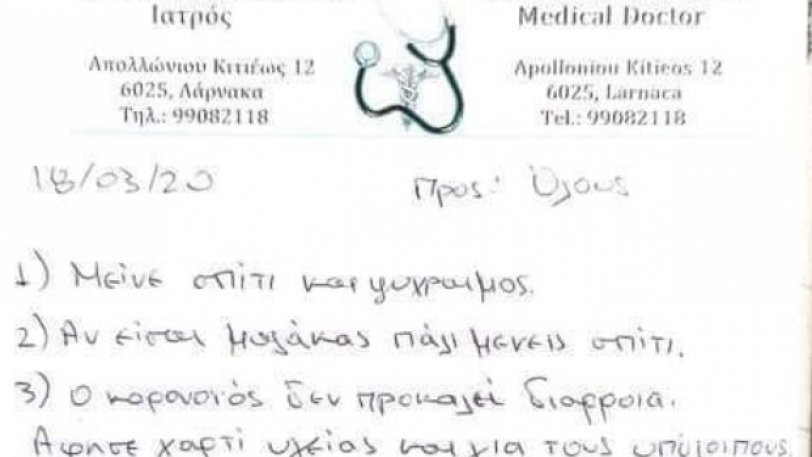 Ιατρός
Medical Doctor
Απολλώνιου Κιτιέως 12
6025, Λάρνακα
Τηλ.: 99082118
Apolloniou Kitieos 12
6025, Larnaca
Tel.: 99082118
18/03/20
Προς: Όλους
1) Μείνε σπίτι και ψύχραιμος.
2) Αν είσαι μαλάκας πάλι μένεις σπίτι.
3) Ο κορονοιός δεν προκαλεί διάρροια.
Άφησε χαρτί υγείας και για τους υπόλοιπους.